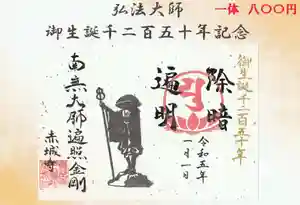 弘法大師
一体 八〇〇円
御生誕千二百五十年記念
御生誕千二百五十年
除暗
遍明
令和五年
一月一日
南無大師遍照金剛
赤城寺